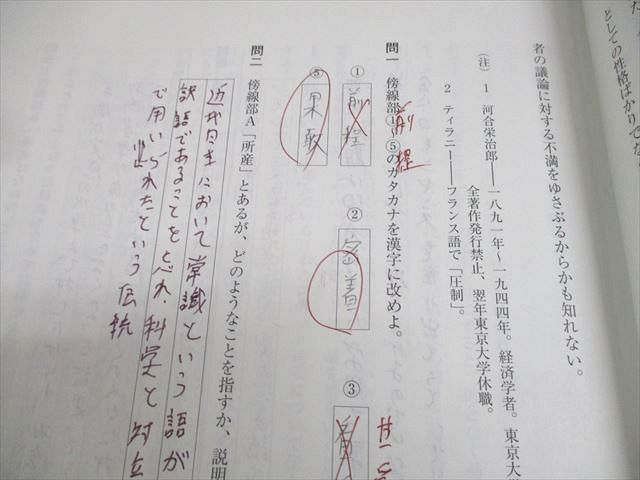 としての性格ばかりでな
者の議論に対する不満をゆさぶるからかも知れない。
（注）　1　河合栄治郎――一八九一年～一九四四年。経済学者。東京大学
全著作発行禁止、翌年東京大学休職。
2　ティラニー――フランス語で「圧制」。
問一　傍線部①～⑤のカタカナを漢字に改めよ。
前程
①
前程
②
密着
③
⑤
果敢
問二　傍線部A「所産」とあるが、どのようなことを指すか、説明
近代日本において常識という語が
訳語であることを忘れ、科学と対立
で用いられたという伝統